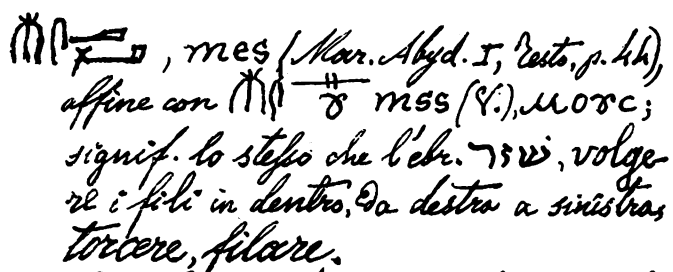 𓄟𓋴, mes (Mar. Abyd. I, Testo, p. 44),
affine con 𓄟𓋴𓊃 mss (V.), ⲙⲟⲩⲥ;
signif. lo stesso che l'ebr. שזר, volge-
re i fili in dentro, da destra a sinistra,
torcere, filare.